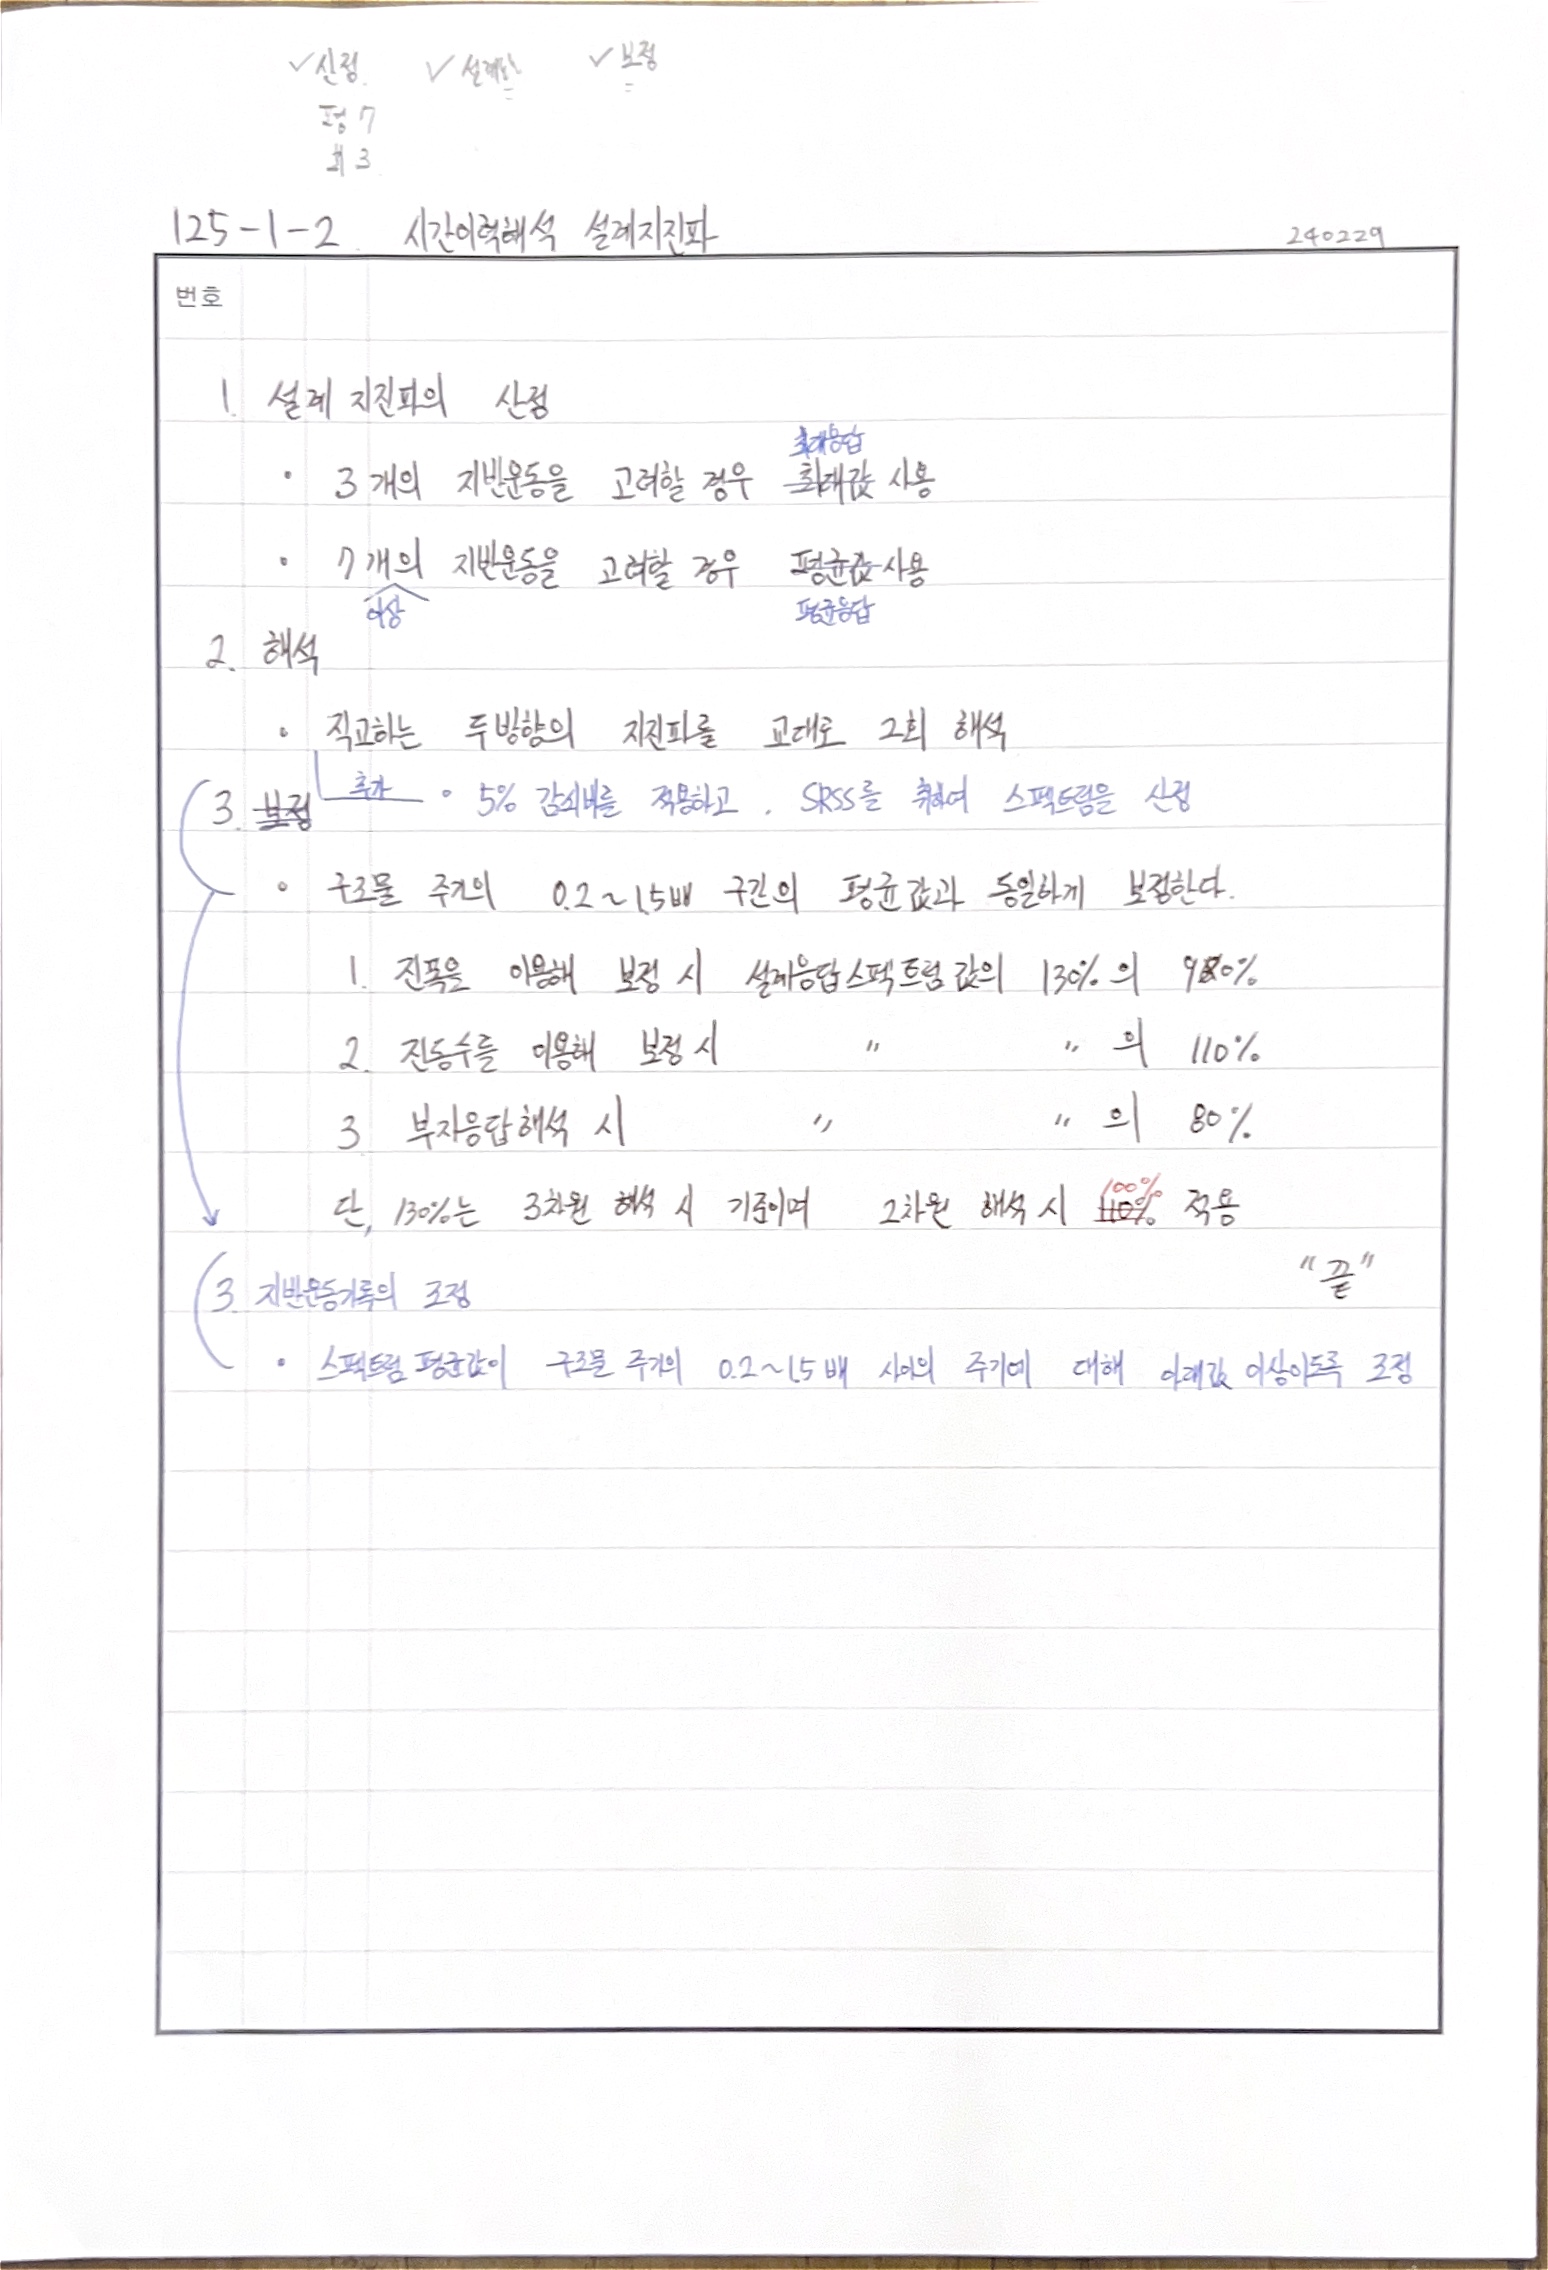 ✓산정. ✓설계 ✓보정
평 7
최 3
125-1-2. 시간이력해석 설계지진파 240229
번호
1. 설계 지진파의 산정
최대응답
• 3개의 지반운동을 고려할 경우 최대값 사용
• 7개의 지반운동을 고려할 경우 평균값 사용
이상 평균응답
2. 해석
• 직교하는 두방향의 지진파를 교대로 2회 해석
3. 보정 추가 • 5% 감쇠비를 적용하고, SRSS를 취하여 스펙트럼을 산정
• 구조물 주기의 0.2~1.5배 구간의 평균값과 동일하게 보정한다.
1. 진폭을 이용해 보정 시 설계응답스펙트럼값의 130%의 90%
2. 진동수를 이용해 보정 시 〃 〃 의 110%
3. 부지응답해석 시 〃 〃 의 80%
단, 130%는 3차원 해석 시 기준이며 2차원 해석 시 110% 100% 적용
"끝"
3. 지반운동기록의 조정
• 스펙트럼 평균값이 구조물 주기의 0.2~1.5배 사이의 주기에 대해 아래값 이상이도록 조정